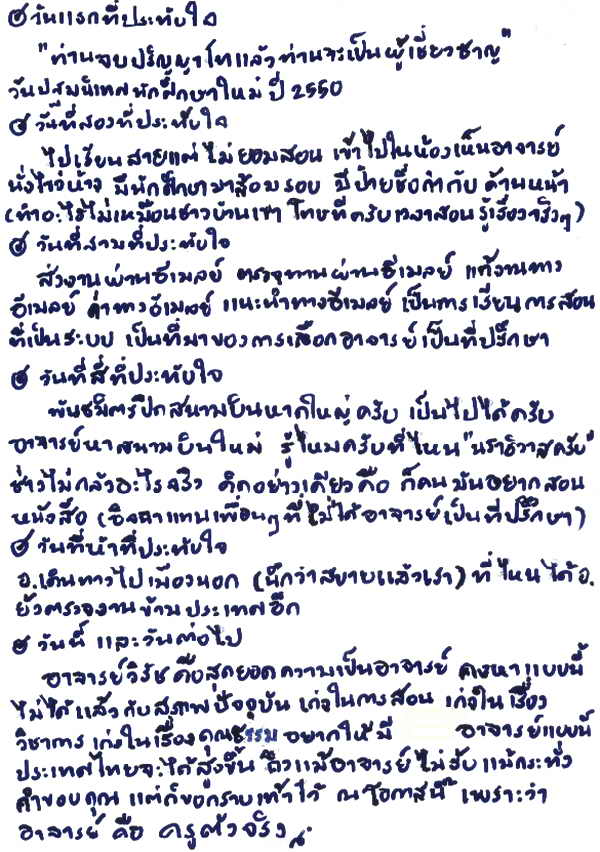 วันแรกที่ประทับใจ
"ท่านจบปริญญาโทแล้วท่านจะเป็นผู้เชี่ยวชาญ"
วันปฐมนิเทศนักศึกษาใหม่ ปี 2550
วันที่สองที่ประทับใจ
ไปเรียนสายแต่ ไม่ยอมสอน เข้าไปในห้องเห็นอาจารย์
นั่งไขว่ห้าง มีนักศึกษามาล้อมรอบ มีป้ายชื่อกำกับ ด้านหน้า
(ทำอะไรไม่เหมือนชาวบ้านเขา โทษทีครับเวลาสอน รู้เรื่องจริงๆ)
วันที่สามที่ประทับใจ
ส่งงานผ่านอีเมลย์ ตรวจทานผ่านอีเมลย์ แก้งานทาง
อีเมลย์ ด่าทางอีเมลย์ แนะนำทางอีเมลย์ เป็นการเรียนการสอน
ที่เป็นระบบ เป็นที่มาของการเลือกอาจารย์เป็นที่ปรึกษา
วันที่สี่ที่ประทับใจ
พันธมิตรปิดสนามบินหาดใหญ่ครับ เป็นไปได้ครับ
อาจารย์หาสนามบินใหม่ รู้ไหมครับที่ไหน "นราธิวาสครับ"
ช่างไม่กลัวอะไรจริง คิดอย่างเดียวคือ ก็คนมันอยากสอน
หนังสือ (อิจฉาแทนเพื่อนๆที่ไม่ได้อาจารย์เป็นที่ปรึกษา)
วันที่ห้าที่ประทับใจ
อ.เดินทางไปเมืองนอก (นึกว่าสบายแล้วเรา) ที่ไหนได้อ.
ยังตรวจงานข้ามประเทศอีก
วันนี้ และวันต่อไป
อาจารย์วิรัช คือสุดยอดความเป็นอาจารย์ คงหาแบบนี้
ไม่ได้แล้วกับสภาพปัจจุบัน เก่งในการสอน เก่งในเรื่อง
วิชาการ เก่งในเรื่องคุณธรรม อยากให้มี อาจารย์แบบนี้
ประเทศไทยจะได้สูงขึ้น ถึงแม้อาจารย์ไม่รับแม้กระทั่ง
คำขอบคุณ แต่ก็ขอกราบเท้าไว้ ณ โอกาสนี้ เพราะว่า
อาจารย์ คือ ครูตัวจริง